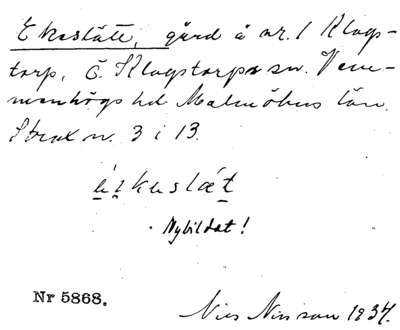 Ekeslätt, gård å nr. 1 Klags-
torp, Ö. Klagstorps sn. Vem-
menhögs hd. Malmöhus län.
Strax n. 3 i 13.
Nybildat!
Nr 5868.
Nils Nilsson 1934.